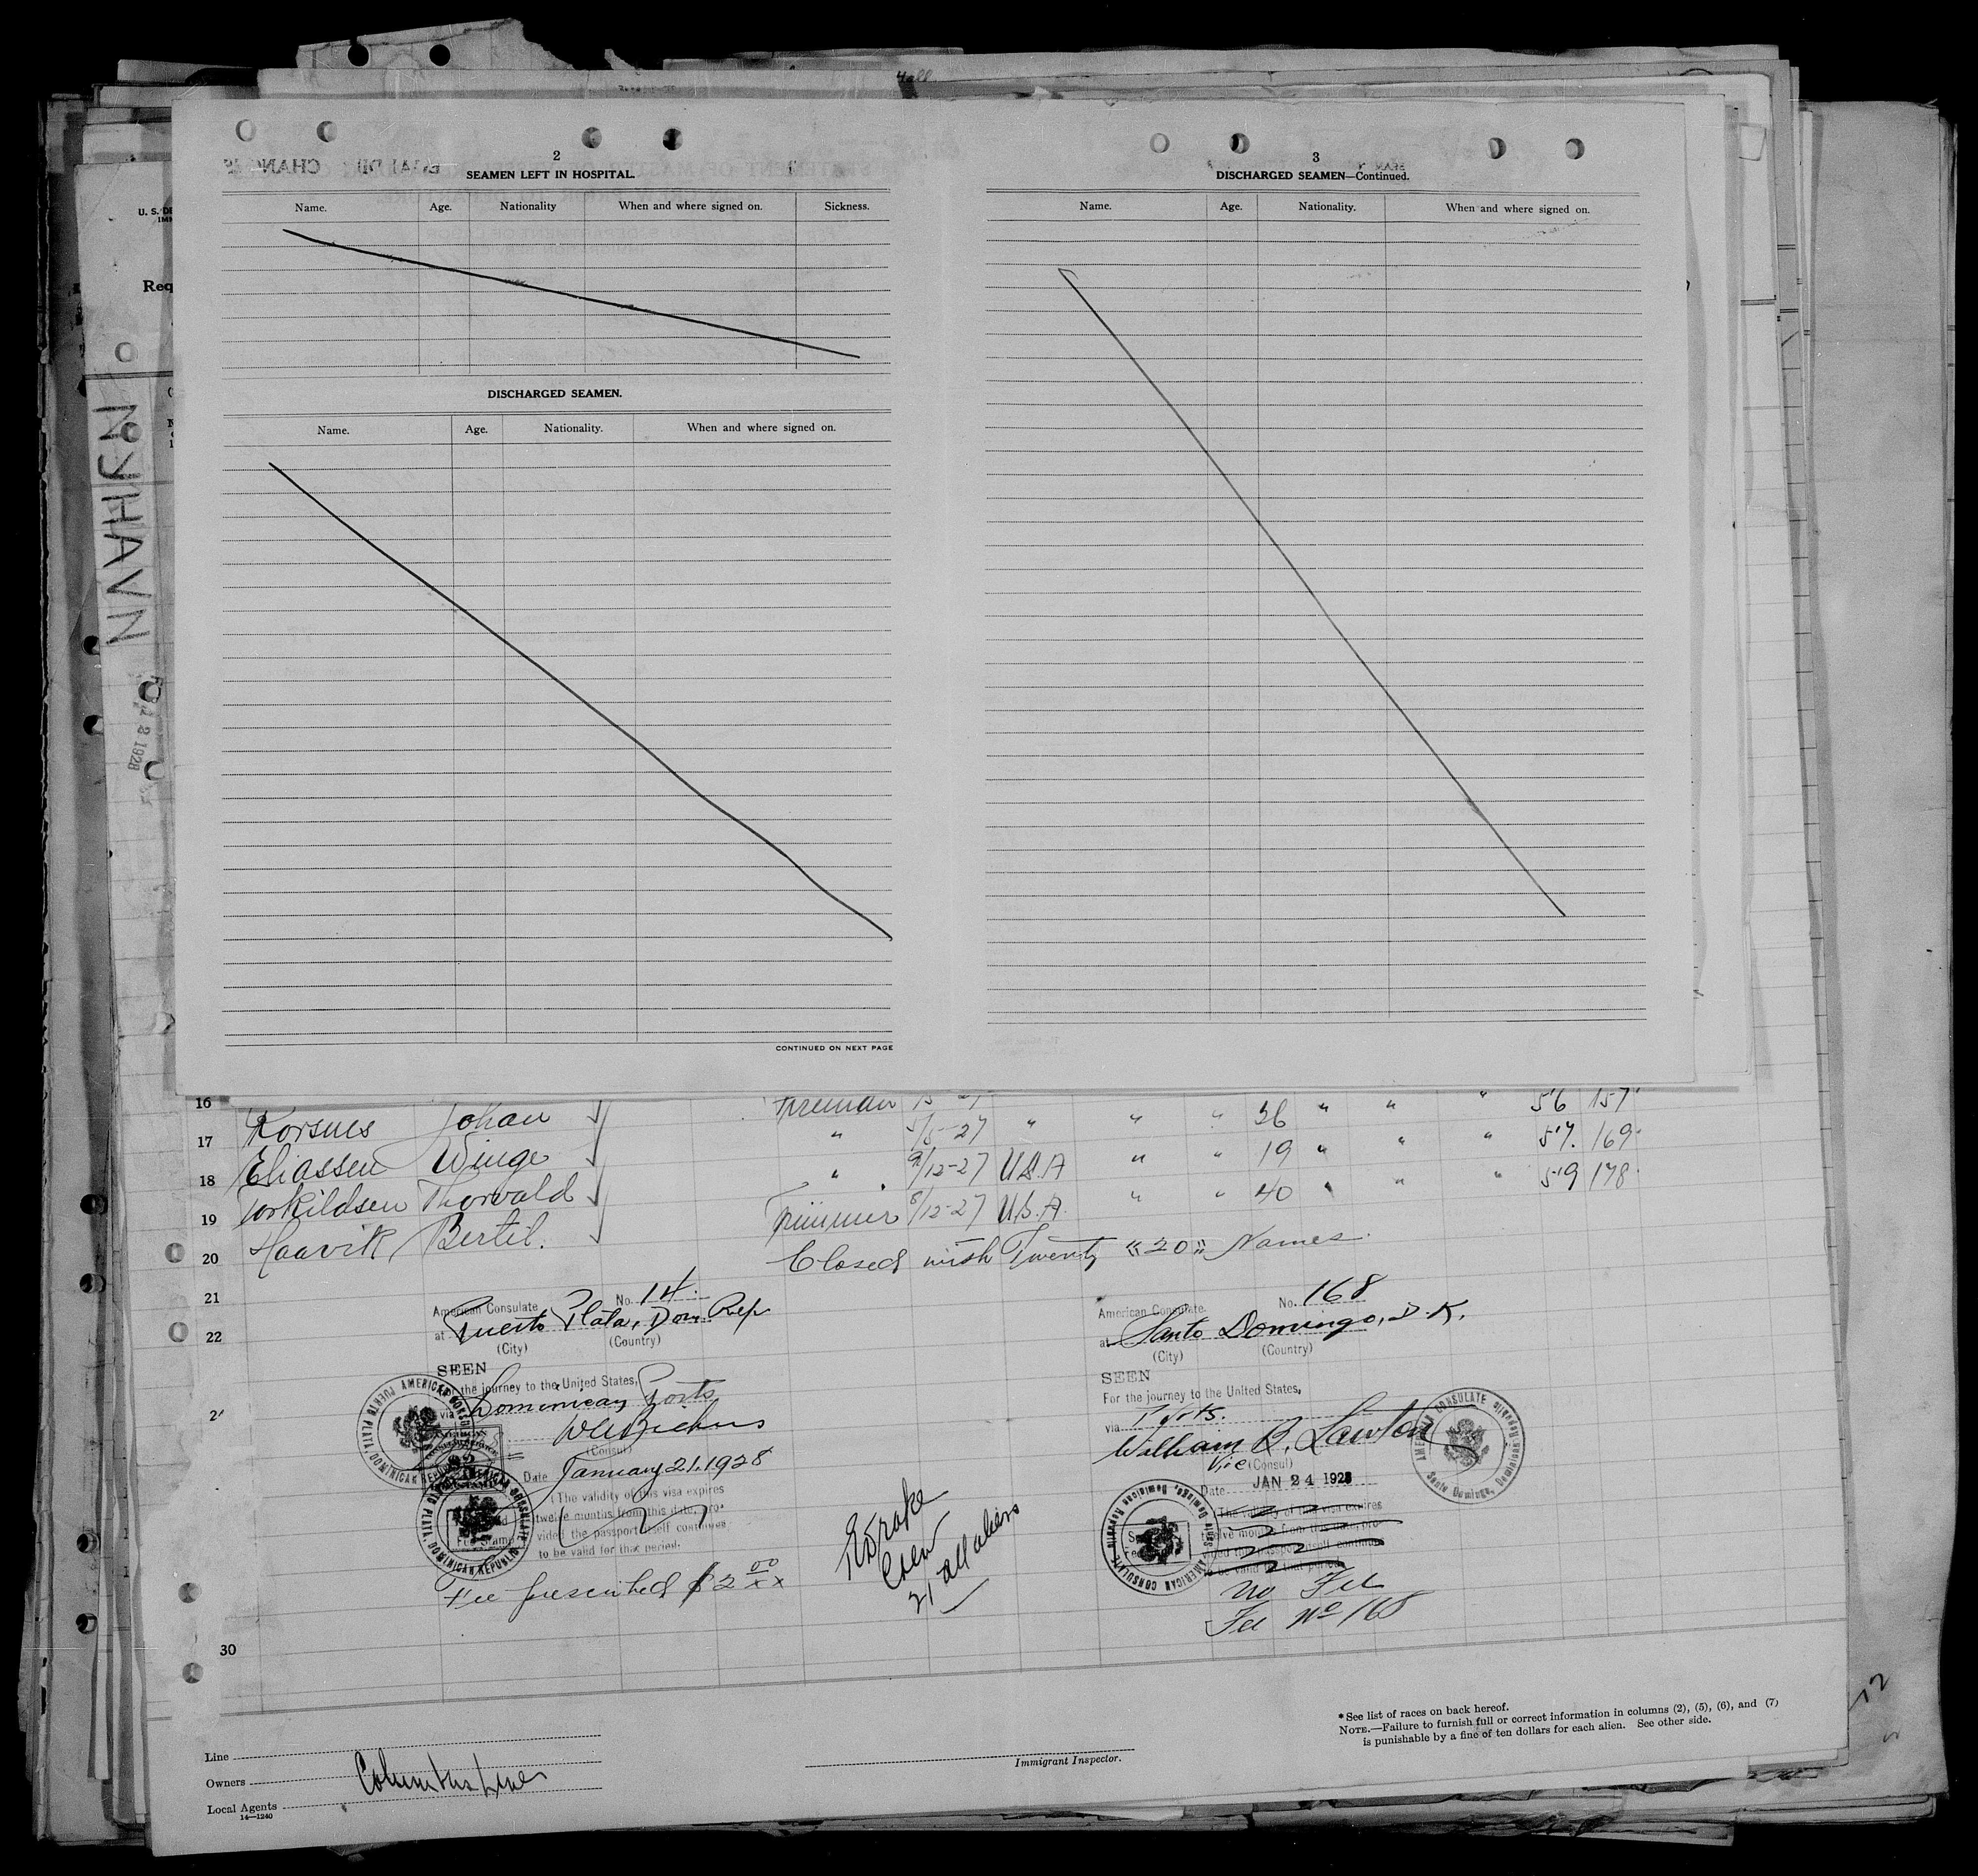 2
SEAMEN LEFT IN HOSPITAL.
Name. Age. Nationality When and where signed on. Sickness.
DISCHARGED SEAMEN.
Name. Age. Nationality. When and where signed on.
CONTINUED ON NEXT PAGE
3
DISCHARGED SEAMEN—Continued.
Name. Age. Nationality. When and where signed on.
U. S. DE
IMM
Req
NYHAVN
2 1928
16 Korsnes Johan Fireman " " 36 " " " 5'6 157
17 Eliassen Winge " 5/5-27 " " " 19 " " " 5'7. 169
18 Torkildsen Thorvald " 9/12-27 U.S.A " " 40 " " " 5'9 178
19 Haavik, Bertil. Trimmer 8/12-27 U.S.A.
20 Closed with Twenty "20" Names.
21
22
30
American Consulate No. 14.
at Puerto Plata, Dom. Rep
(City) (Country)
SEEN
the journey to the United States,
via Dominican Ports
(Consul)
Date January 21. 1928
(The validity of this visa expires
twelve months from this date, pro-
vided the passport itself continues
to be valid for that period.
Fee prescribed $2 00/xx
AMERICAN CONSULATE
PUERTO PLATA, DOMINICAN REPUBLIC
crew
21 all aliens
American Consulate No. 168
at Santo Domingo, D.R.
(City) (Country)
SEEN
For the journey to the United States,
via Ports.
William B. Lawton
Vice (Consul)
Date JAN 24 1928
(The validity of this visa expires
twelve months from this date, pro-
vided the passport itself continues
to be valid for that period.
No Fee
Fee No 168
AMERICAN CONSULATE
Santo Domingo, Dominican Republic
Line
Owners Columbus Line
Local Agents
14—1240
Immigrant Inspector.
* See list of races on back hereof.
NOTE.—Failure to furnish full or correct information in columns (2), (5), (6), and (7)
is punishable by a fine of ten dollars for each alien. See other side.